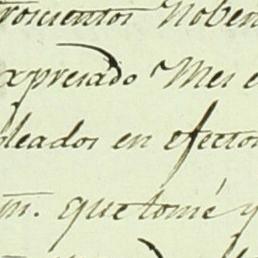 trosientos Noben
xpresado Mes e
pleados en efectos
m. que tomé y